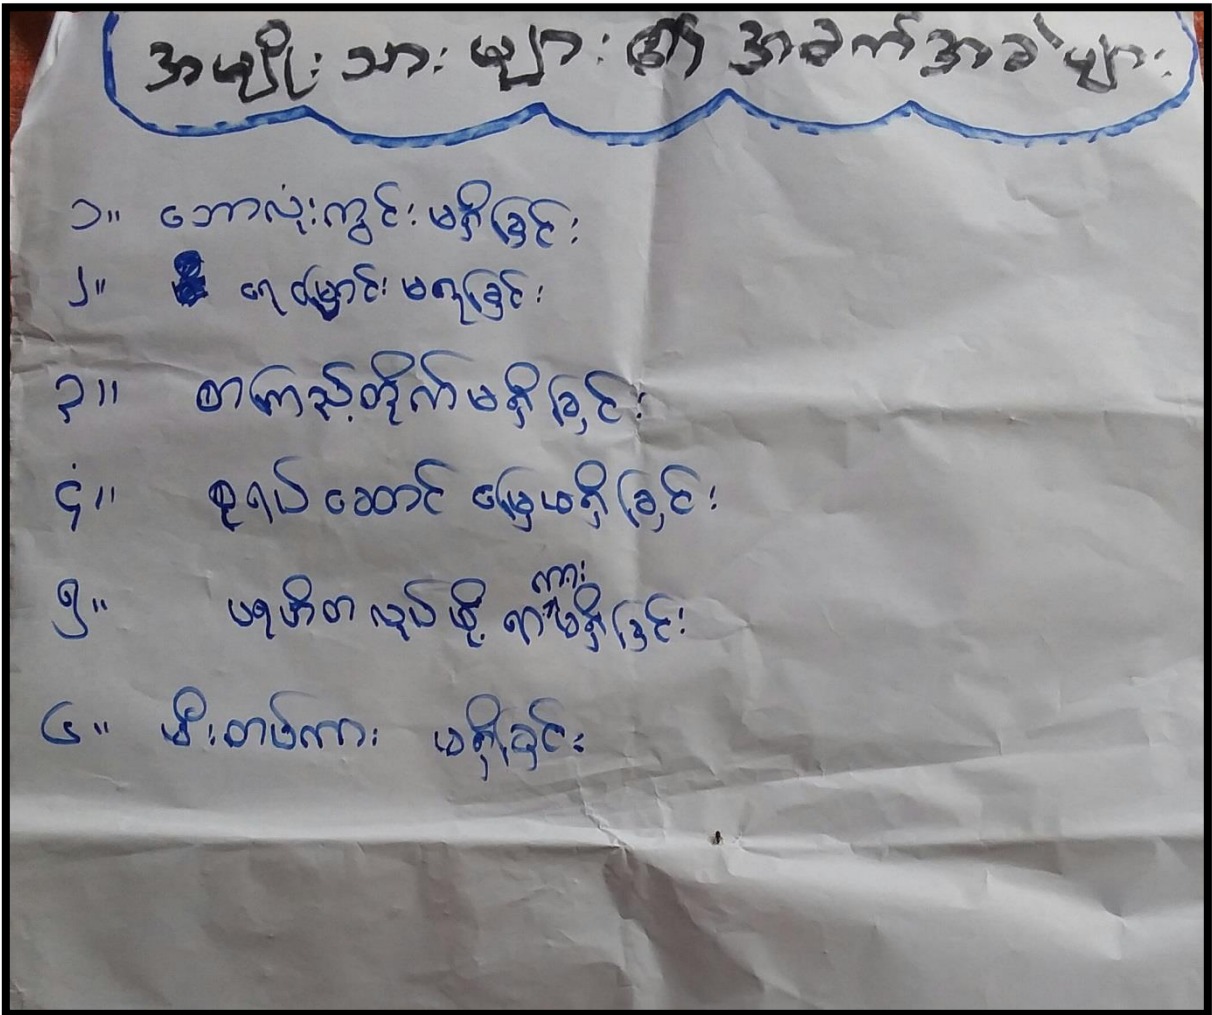 အမျိုးသားများ၏ အခက်အခဲများ
၁။ ဘောလုံးကွင်းမရှိခြင်း
၂။ ရေမြောင်းမရှိခြင်း
၃။ စာကြည့်တိုက်မရှိခြင်း
၄။ စုရပ်ဆောင် မြေမရှိခြင်း
၅။ ပရဟိတလုပ်ဖို့ ကားမရှိခြင်း
၆။ မီးသတ်ကား မရှိခြင်း